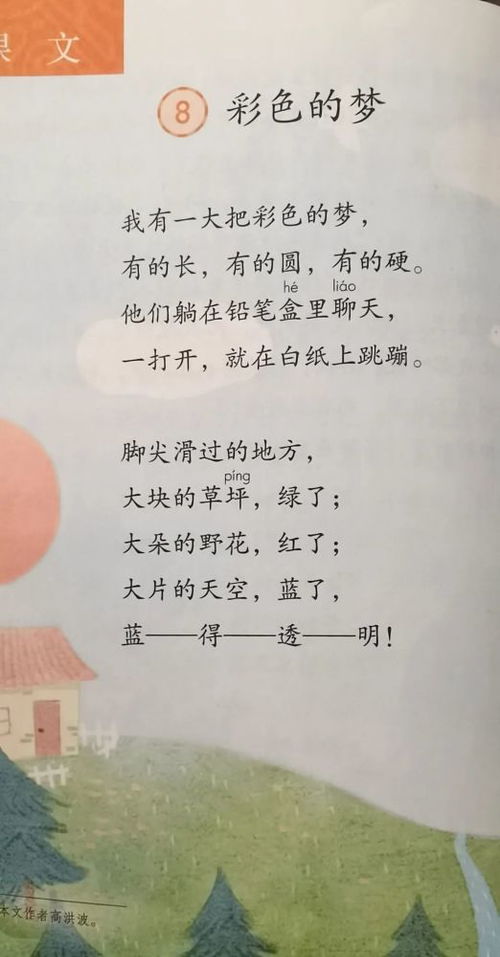 课文
8 彩色的梦
我有一大把彩色的梦，
有的长，有的圆，有的硬。
hé liáo
他们躺在铅笔盒里聊天，
一打开，就在白纸上跳蹦。
脚尖滑过的地方，
píng
大块的草坪，绿了；
大朵的野花，红了；
大片的天空，蓝了，
蓝——得——透——明！
本文作者高洪波。